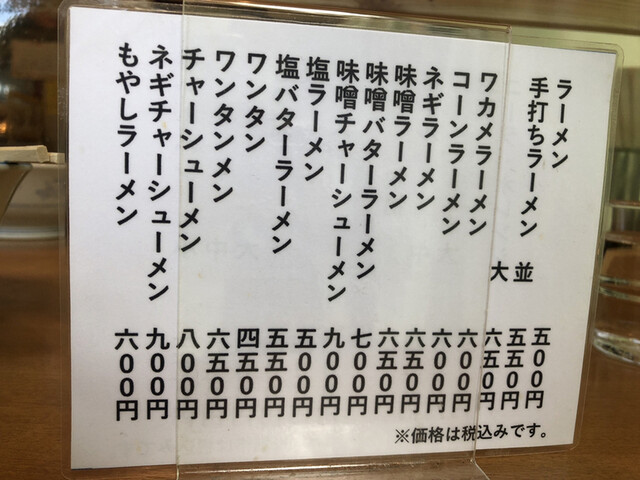 ラーメン 五００円
手打ちラーメン 並 五五０円
大 六五０円
ワカメラーメン 六００円
コーンラーメン 六００円
ネギラーメン 六五０円
味噌ラーメン 六五０円
味噌バターラーメン 七００円
味噌チャーシューメン 九００円
塩ラーメン 五００円
塩バターラーメン 五五０円
ワンタン 四五０円
ワンタンメン 六五０円
チャーシューメン 八００円
ネギチャーシューメン 九００円
もやしラーメン 六００円
※価格は税込みです。